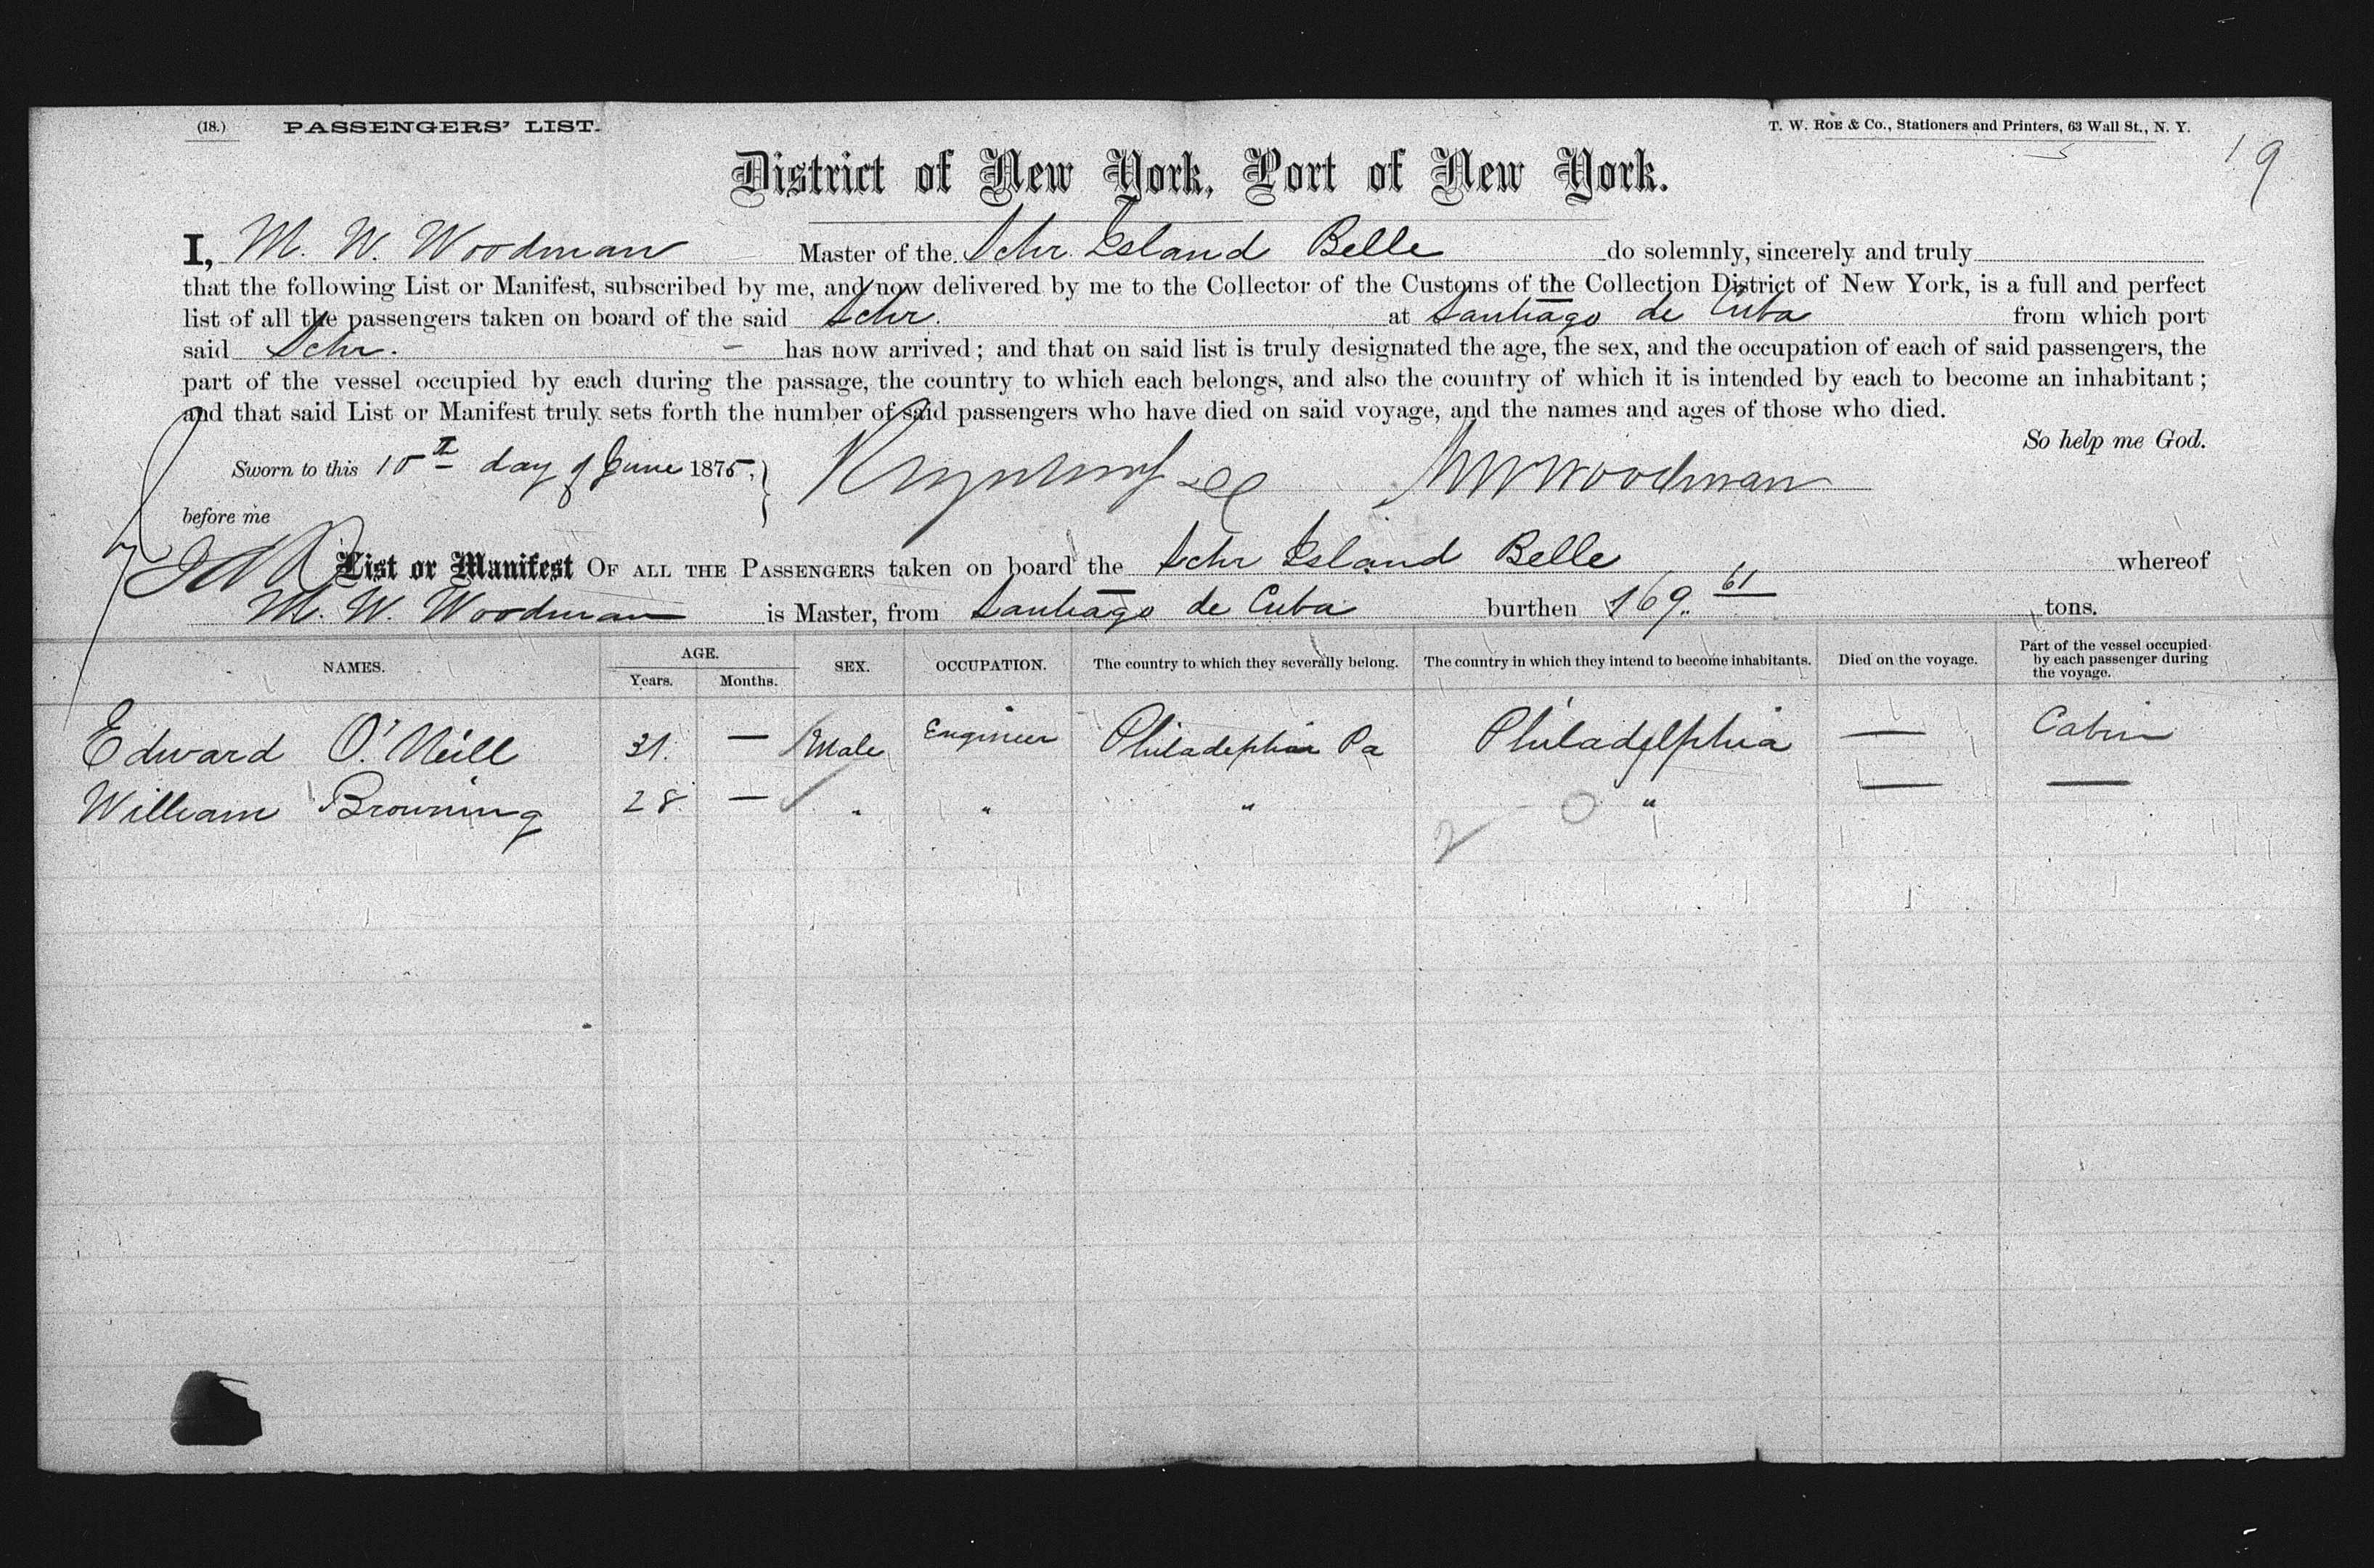 (18.) PASSENGERS' LIST. T. W. ROE & Co., Stationers and Printers, 63 Wall St., N. Y.
19
District of New York, Port of New York.
I, M. W. Woodman Master of the Schr Island Belle do solemnly, sincerely and truly
that the following List or Manifest, subscribed by me, and now delivered by me to the Collector of the Customs of the Collection District of New York, is a full and perfect
list of all the passengers taken on board of the said Schr. at Santiago de Cuba from which port
said Schr. has now arrived; and that on said list is truly designated the age, the sex, and the occupation of each of said passengers, the
part of the vessel occupied by each during the passage, the country to which each belongs, and also the country of which it is intended by each to become an inhabitant;
and that said List or Manifest truly sets forth the number of said passengers who have died on said voyage, and the names and ages of those who died.
So help me God.
Sworn to this 10th day of June 1875, M W Woodman
before me
List or Manifest OF ALL THE PASSENGERS taken on board the Schr Island Belle whereof
M. W. Woodman is Master, from Santiago de Cuba burthen 169. 61 tons.
NAMES. AGE. Years. Months. SEX. OCCUPATION. The country to which they severally belong. The country in which they intend to become inhabitants. Died on the voyage. Part of the vessel occupied by each passenger during the voyage.
Edward O'Neill 31. — Male Engineer Philadephia Pa Philadelphia — Cabin
William Browning 28 — " " " " — —
2 0